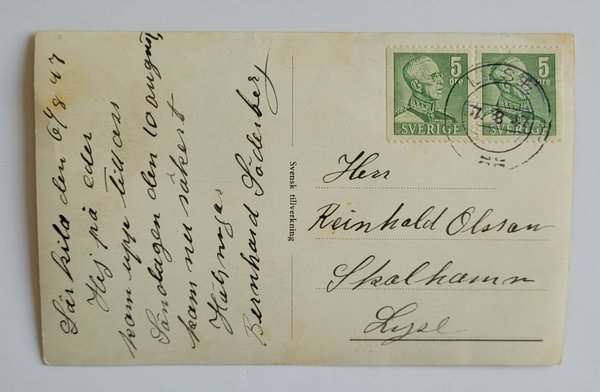 Särkila den 6/8 47
Hej på eder
kom upp till oss
Söndagen den 10 augusti
kom nu säkert
Hälsningar
Bernhard Söderberg
Svensk tillverkning
5 ÖRE
SVERIGE
5 ÖRE
SVERIGE
Herr
Reinhold Olsson
Skalhamn
Lyse